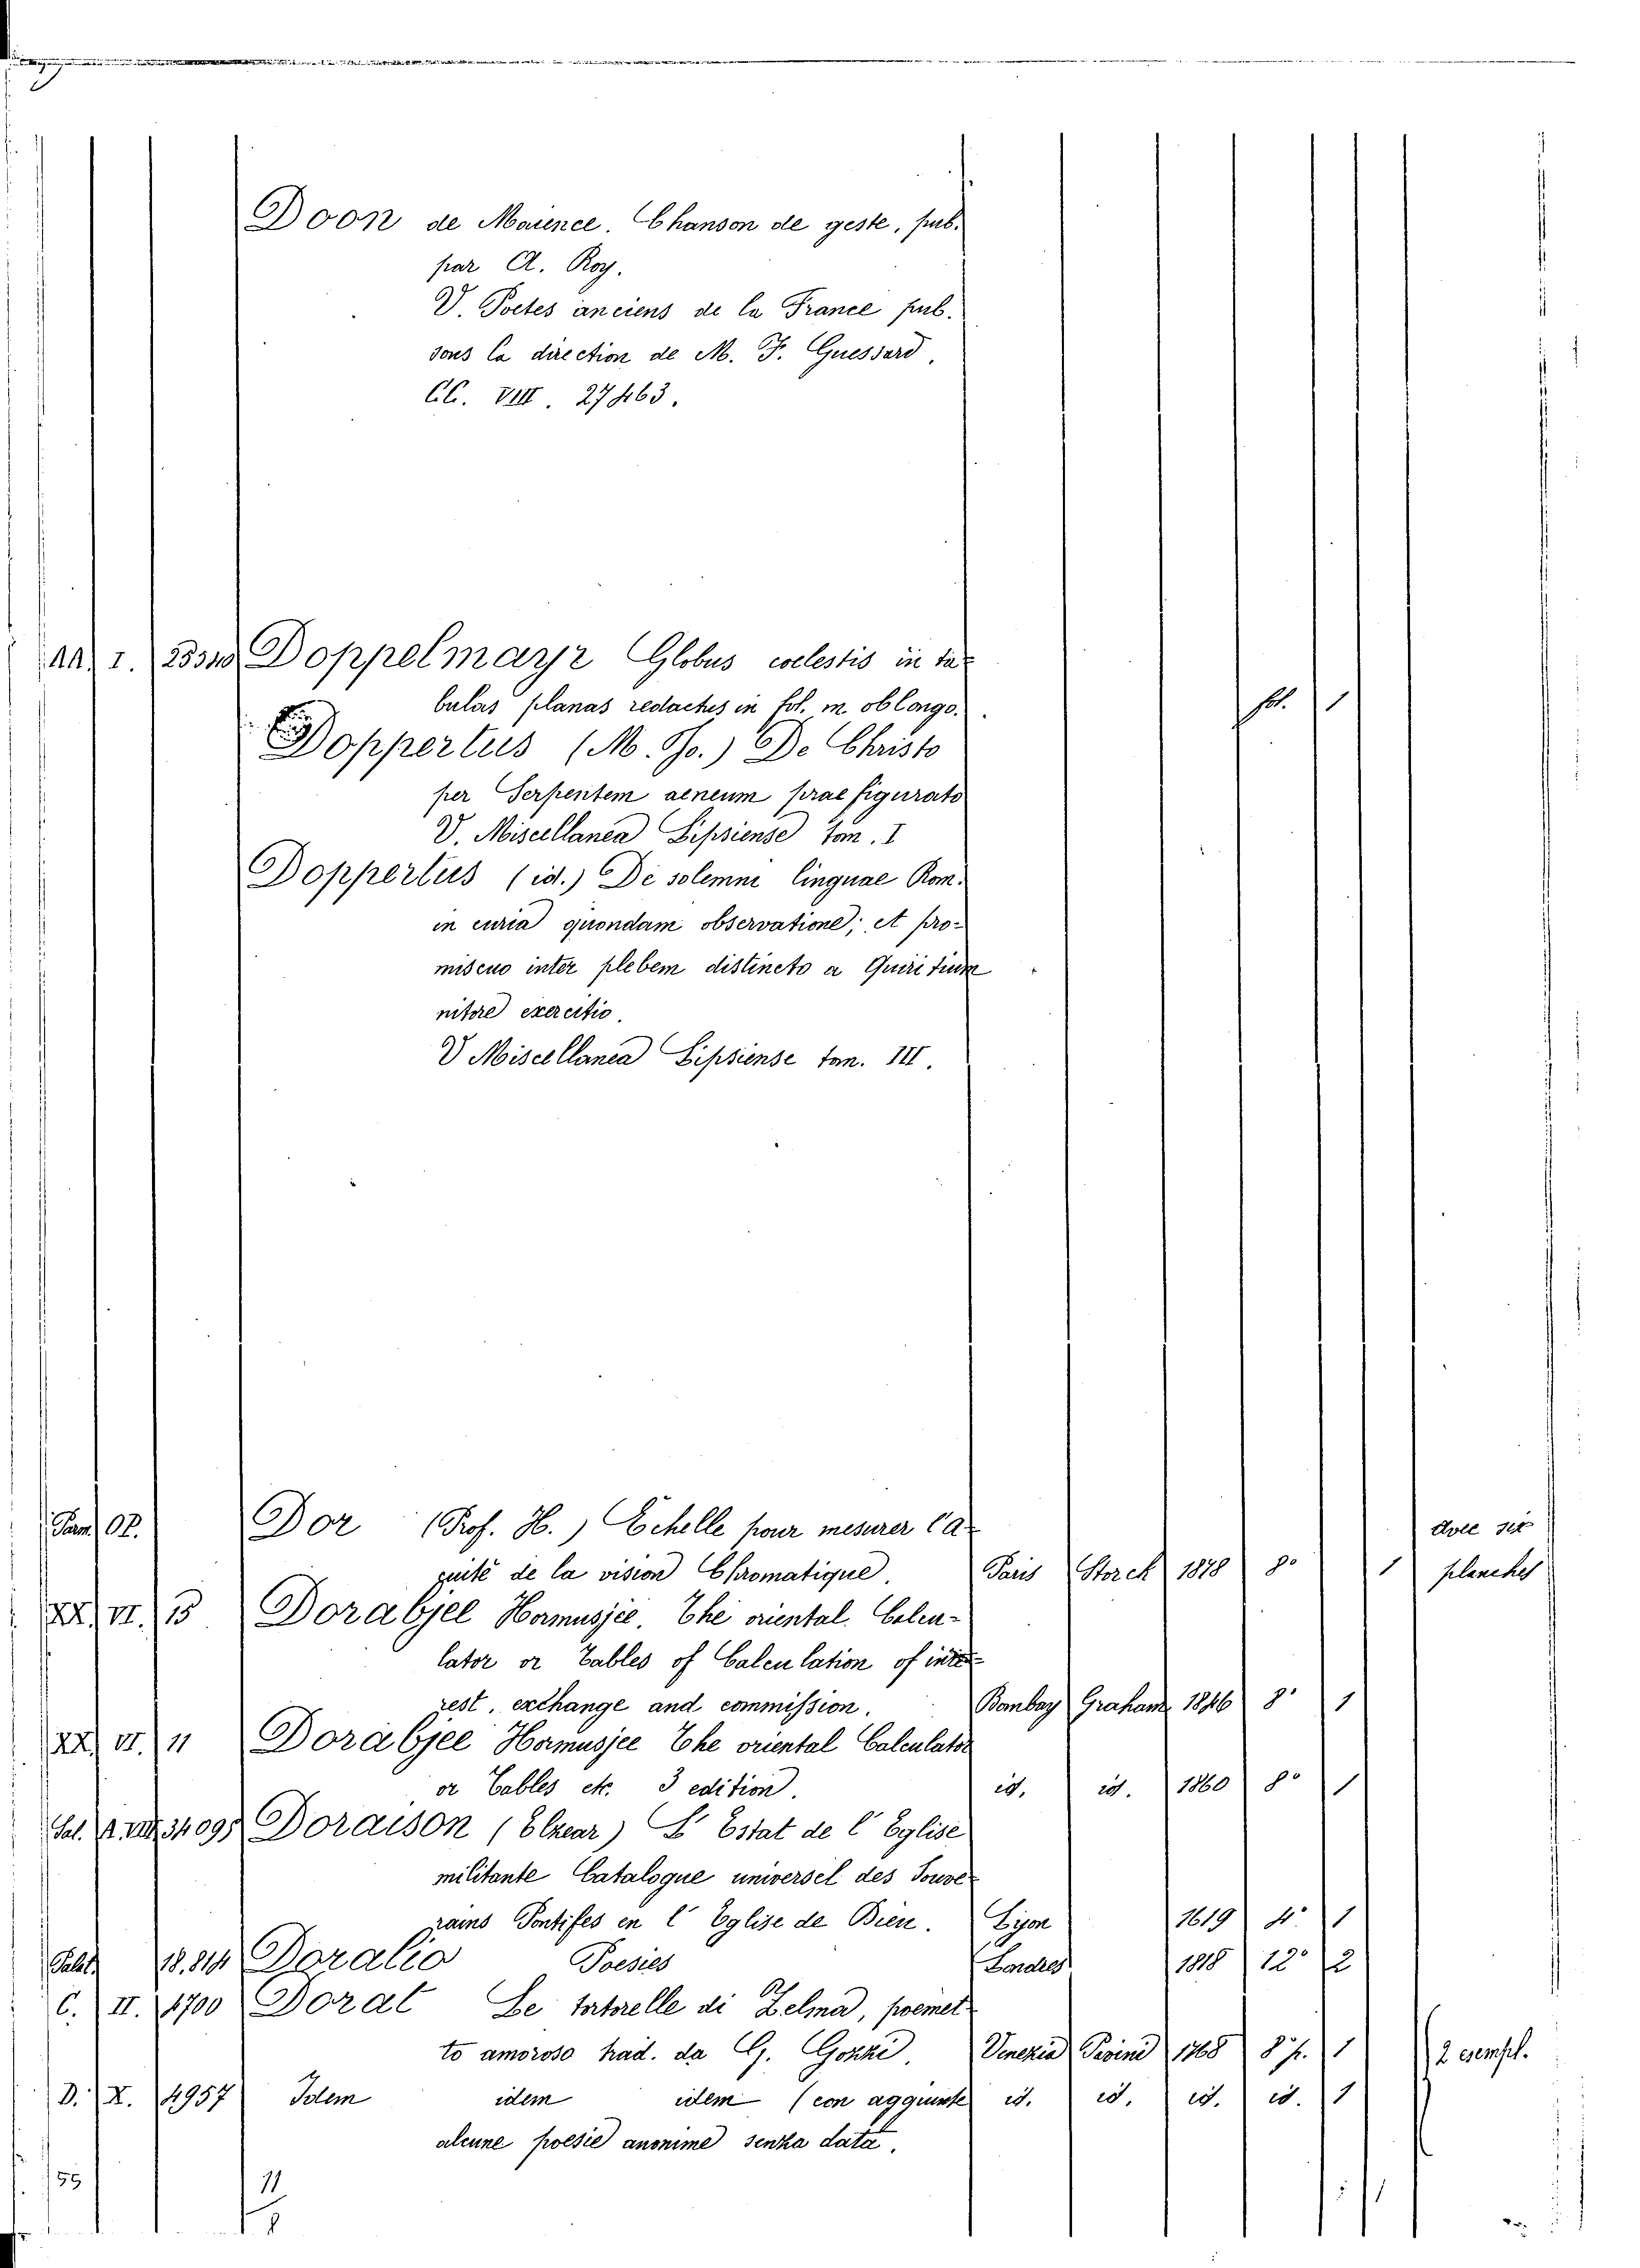 Doon de Maience. Chanson de geste, pub.
par A. Roy.
V. Poetes anciens de la France pub.
sous la direction de M. F. Guessard,
CC. VIII. 27463.
AA. I. 25340 Doppelmayr Globus coelestis in ta-
bulas planas redactus in fol. m. oblongo. fol. 1
Doppertus (M. Jo.) De Christo
per Serpentem aeneum praefigurato
V. Miscellanea Lipsiense tom. I
Doppertus (id.) De solemni linguae Rom.
in curia quondam observatione; et pro-
miscuo inter plebem distincto a Quiritium
nitore exercitio.
V Miscellanea Lipsiense tom. III.
Dor (Prof. H.) Echelle pour mesurer l'a-
cuité de la vision Chromatique. Paris Storck 1878 8° 1 planches
XX. VI. 15 Dorabjee Hormusjee. The oriental. Calcu-
lator or Tables of Calculation of inte-
rest, exchange and commission. Bombay Graham 1846 8° 1
XX. VI. 11 Dorabjee Hormusjee The oriental Calculator
or Tables etc. 3 edition. id. id. 1860 8° 1
Sal. A. VIII. 34095 Doraison (Elzear) L' Estat de l' Eglise
militante Catalogue universel des Souve-
rains Pontifes en l' Eglise de Bien. Lyon 1619 4° 1
18.814 Doralio Poesies Londres 1818 12° 2
C. II. 4700 Dorat Le tortorelle di Zelma, poemet-
to amoroso trad. da G. Gozzi. Venezia 1768 8° p. 1 2 esempl.
D. X. 4957 Idem idem idem (con aggiunte id. id. id. id. 1
alcune poesie anonime senza data.
55 11
8